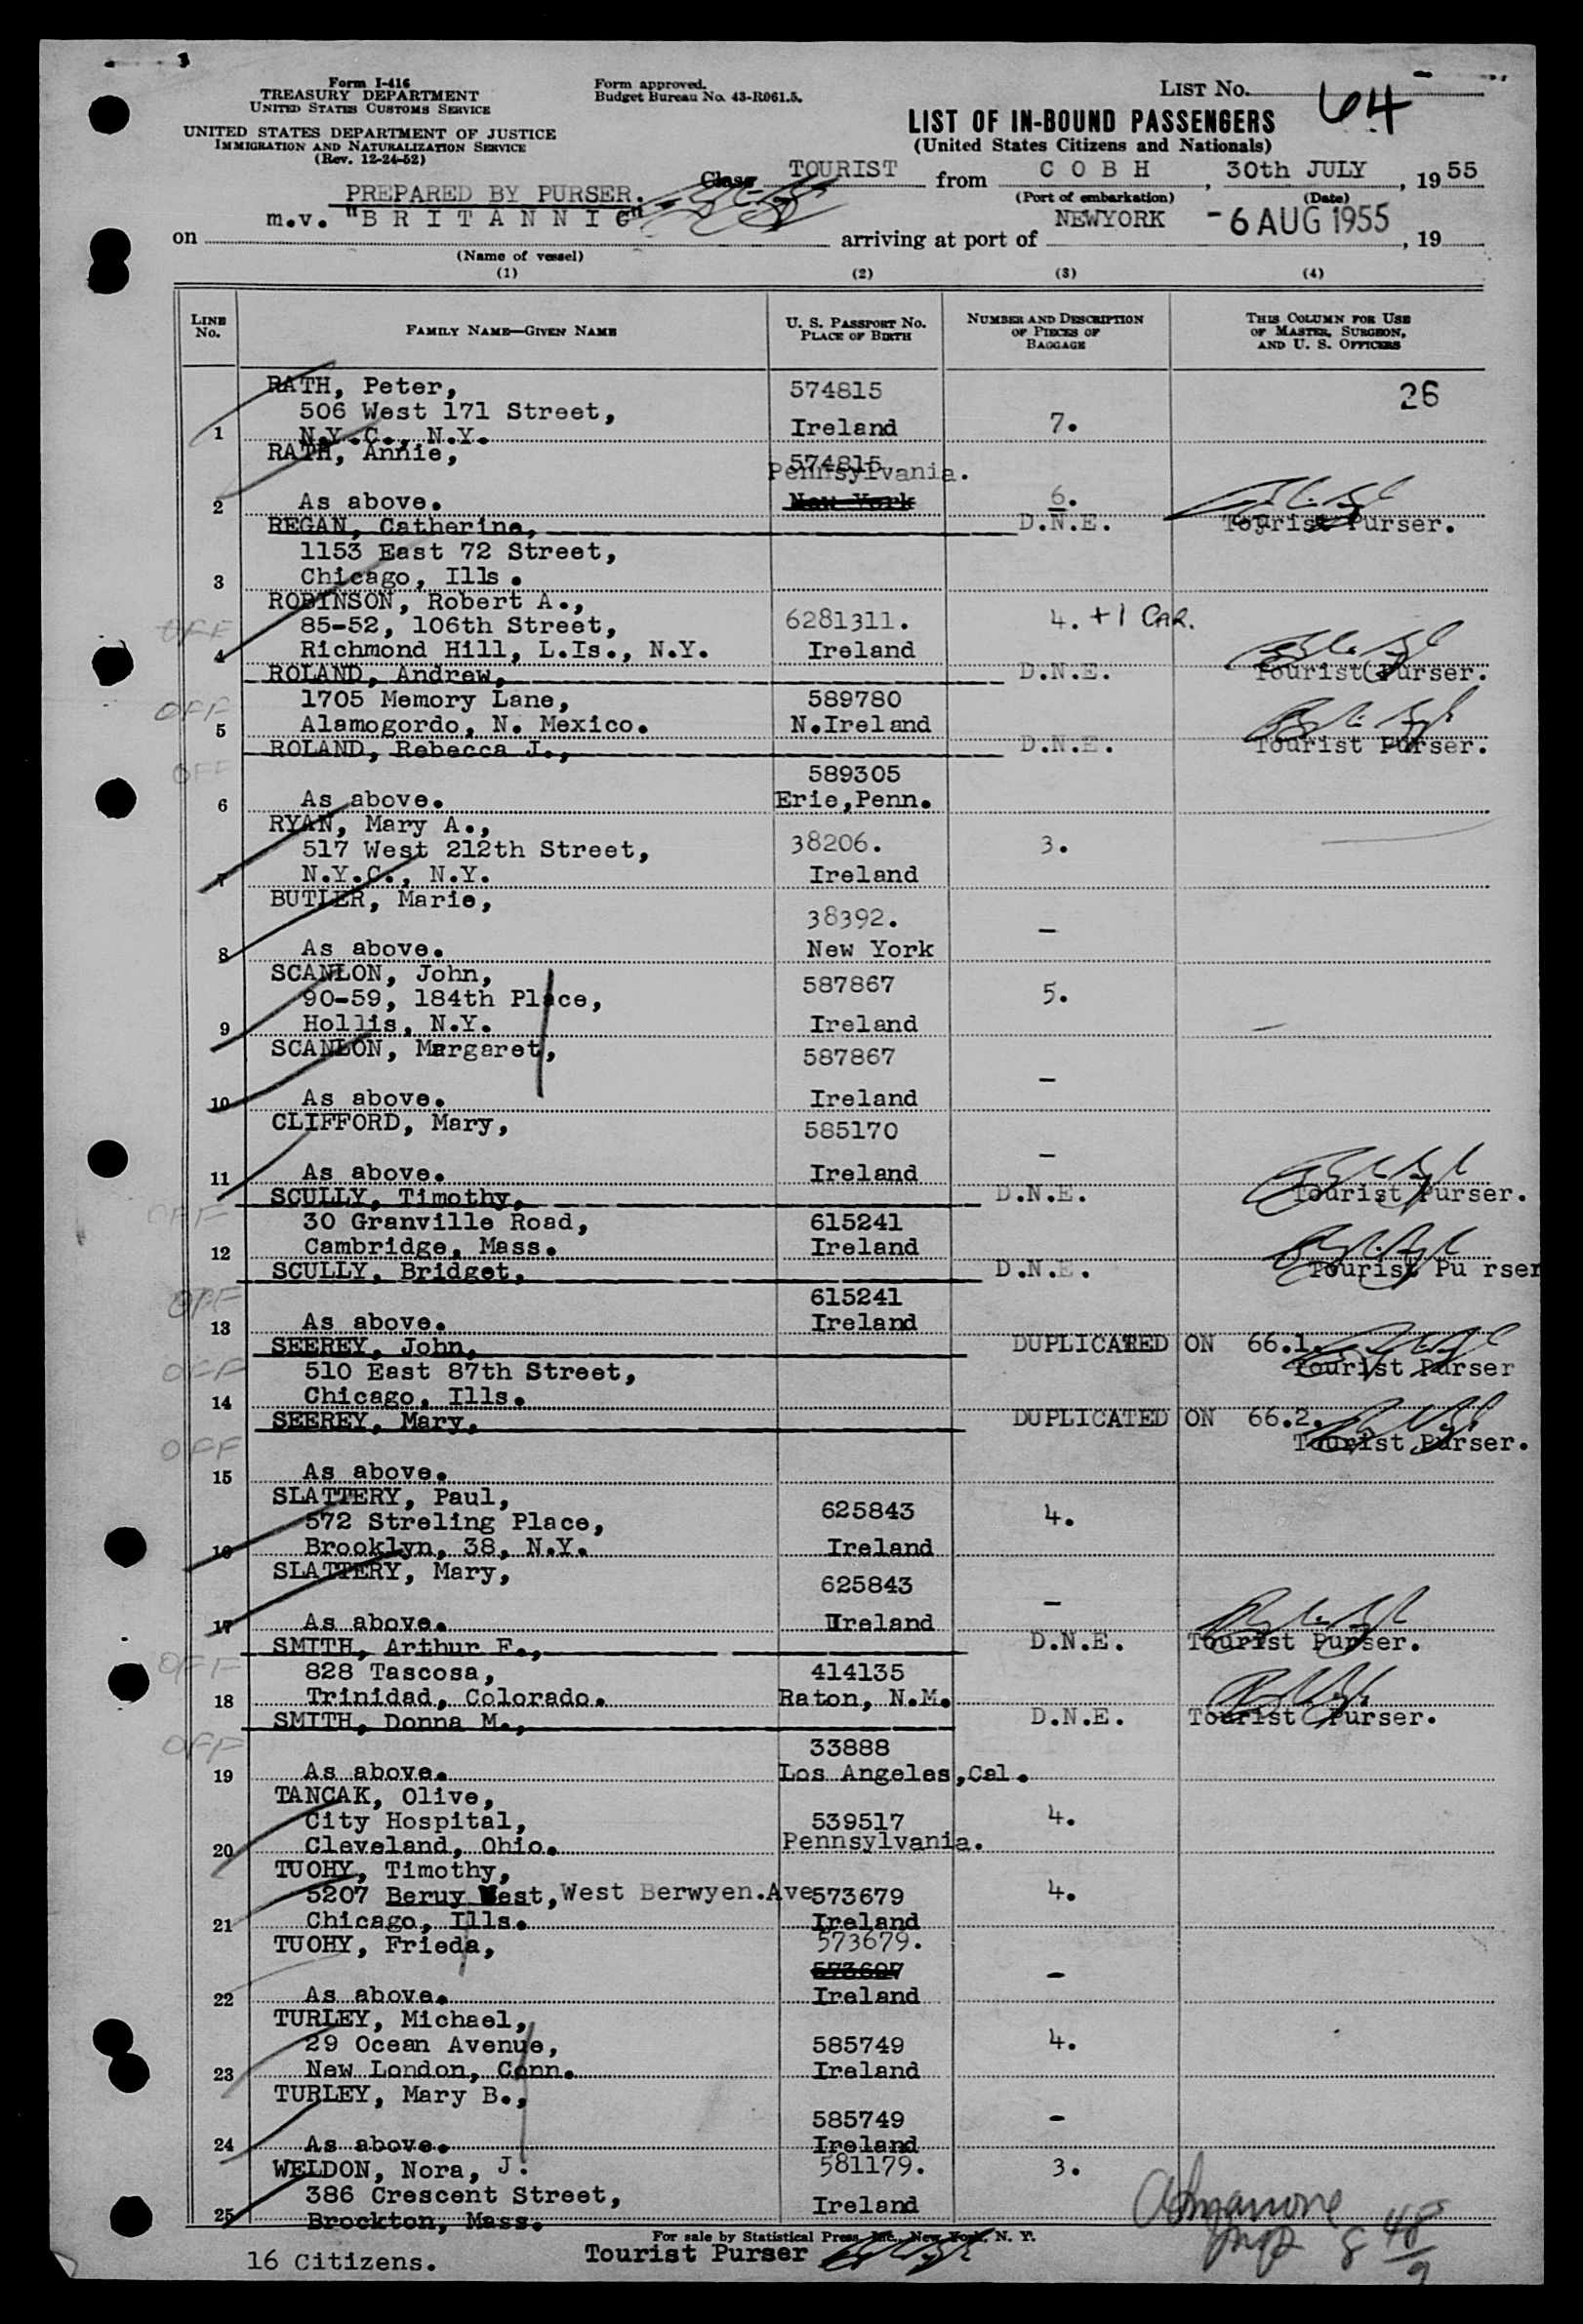 Form I-416
TREASURY DEPARTMENT
UNITED STATES CUSTOMS SERVICE
UNITED STATES DEPARTMENT OF JUSTICE
IMMIGRATION AND NATURALIZATION SERVICE
(Rev. 12-24-52)
Form approved.
Budget Bureau No. 43-R061.5.
LIST No. 64
LIST OF IN-BOUND PASSENGERS
(United States Citizens and Nationals)
Class TOURIST from C O B H, 30th JULY, 1955
(Port of embarkation) (Date)
PREPARED BY PURSER.
on m.v. "B R I T A N N I C" arriving at port of NEWYORK -6 AUG 1955, 19
(Name of vessel)
(1) (2) (3) (4)
LINE No. FAMILY NAME—GIVEN NAME U. S. PASSPORT No. PLACE OF BIRTH NUMBER AND DESCRIPTION OF PIECES OF BAGGAGE THIS COLUMN FOR USE OF MASTER, SURGEON, AND U. S. OFFICERS
RATH, Peter, 574815 26
506 West 171 Street,
1 N.Y.C., N.Y. Ireland 7.
RATH, Annie, 574815
Pennsylvania.
2 As above. New York 6.
REGAN, Catherine, D.N.E. Tourist Purser.
1153 East 72 Street,
3 Chicago, Ills.
ROBINSON, Robert A.,
OFF 85-52, 106th Street, 6281311. 4. +1 CAR.
4 Richmond Hill, L.Is., N.Y. Ireland
ROLAND, Andrew, D.N.E. Tourist Purser.
OFF 1705 Memory Lane, 589780
5 Alamogordo, N. Mexico. N.Ireland
ROLAND, Rebecca J., D.N.E. Tourist Purser.
OFF 589305
6 As above. Erie,Penn.
RYAN, Mary A.,
517 West 212th Street, 38206. 3.
7 N.Y.C., N.Y. Ireland
BUTLER, Marie,
38392. -
8 As above. New York
SCANLON, John, 587867
90-59, 184th Place, 5.
9 Hollis, N.Y. Ireland
SCANLON, Margaret, 587867
-
10 As above. Ireland
CLIFFORD, Mary, 585170
-
11 As above. Ireland
SCULLY, Timothy, D.N.E. Tourist Purser.
OFF 30 Granville Road, 615241
12 Cambridge, Mass. Ireland
SCULLY, Bridget, D.N.E. Tourist Pu rser
OFF 615241
13 As above. Ireland
SEEREY, John, DUPLICATED ON 66.1.
OFF 510 East 87th Street, Tourist Purser
14 Chicago, Ills.
SEEREY, Mary, DUPLICATED ON 66.2.
OFF Tourist Purser.
15 As above.
SLATTERY, Paul, 625843 4.
572 Streling Place,
16 Brooklyn, 38, N.Y. Ireland
SLATTERY, Mary, 625843
-
17 As above. Ireland
SMITH, Arthur F., D.N.E. Tourist Purser.
OFF 828 Tascosa, 414135
18 Trinidad, Colorado. Raton, N.M.
SMITH, Donna M., D.N.E. Tourist Purser.
OFF 33888
19 As above. Los Angeles,Cal.
TANCAK, Olive,
City Hospital, 539517 4.
20 Cleveland, Ohio. Pennsylvania.
TUOHY, Timothy,
5207 Beruy West, West Berwyen.Ave 573679 4.
21 Chicago, Ills. Ireland
TUOHY, Frieda, 573679.
-
22 As above. Ireland
TURLEY, Michael,
29 Ocean Avenue, 585749 4.
23 New London, Conn. Ireland
TURLEY, Mary B.,
585749 -
24 As above. Ireland
WELDON, Nora, J. 581179. 3.
386 Crescent Street, Ireland
25 Brockton, Mass.
For sale by Statistical Press, Inc., New York, N. Y.
16 Citizens. Tourist Purser